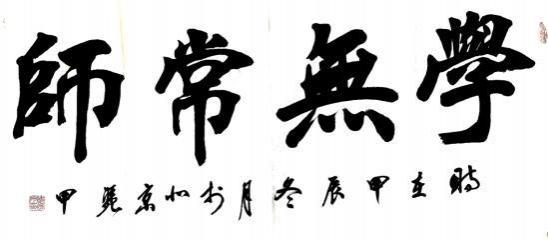 學無常師
時在甲辰冬月於北京甲